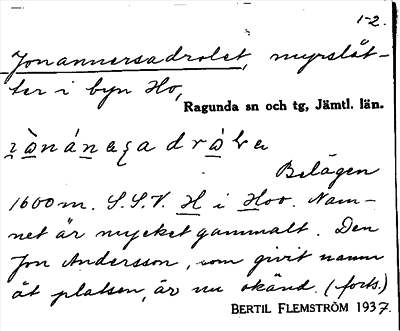 1-2.
Jonannersadrolet, myrslåt-
ter i byn Ho,
Ragunda sn och tg, Jämtl. län.
Belägen
1600 m. S.S.V. H i Hoo. Nam-
net är mycket gammalt. Den
Jon Andersson, som givit namn
åt platsen, är nu okänd. (forts.)
BERTIL FLEMSTRÖM 1937.